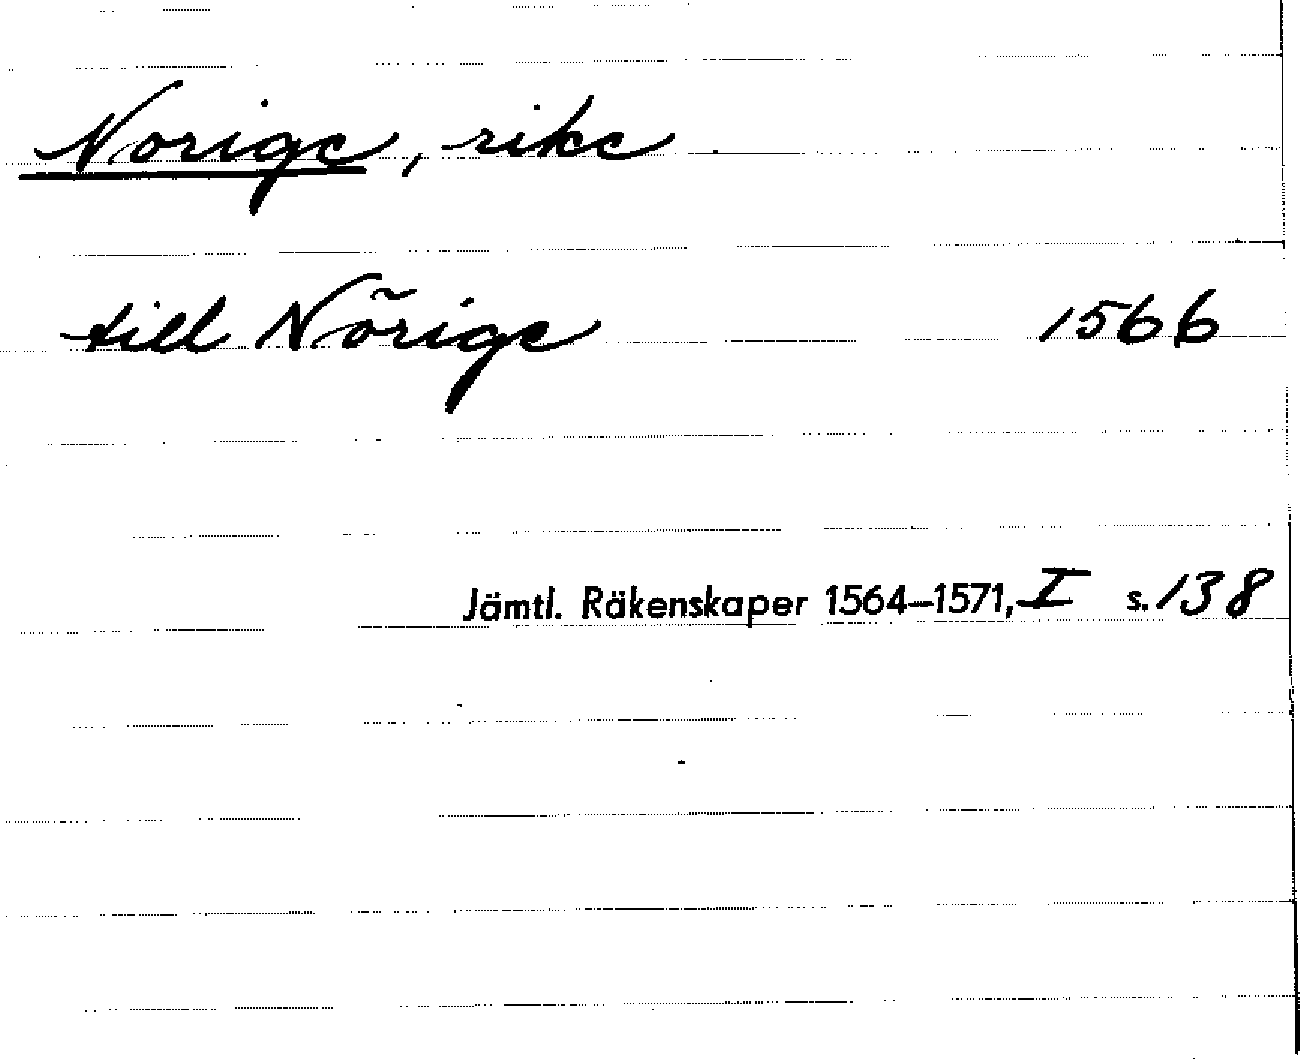 Norige, rike
till Nõrige 1566
Jämtl. Räkenskaper 1564–1571, I s. 138